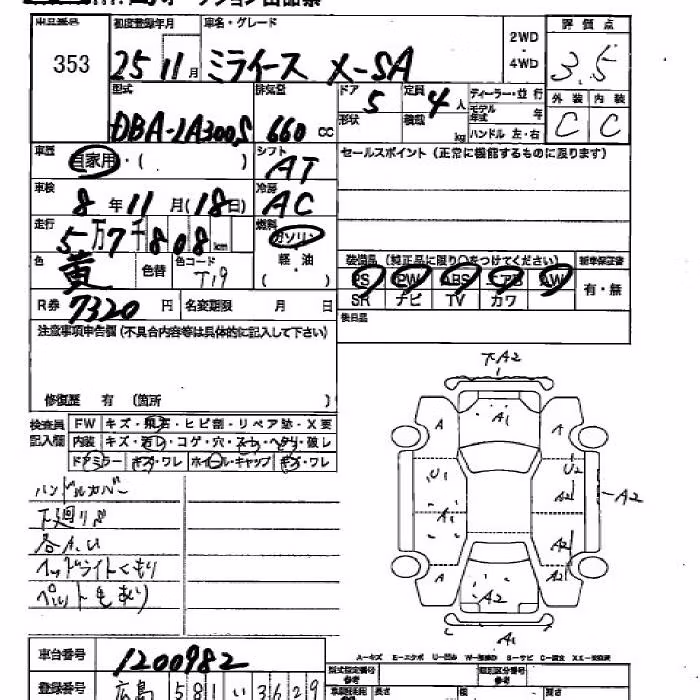 車名・グレード
353
25 11月 ミライース X-SA
2WD
・
4WD
評価点
3.5
型式
DBA-LA300S
排気量
660 cc
ドア 5
形状
定員 4人
積載 kg
ディーラー・並行
モデル年式 年
ハンドル 左・右
外装 内装
C C
車歴 自家用・( )
シフト AT
セールスポイント(正常に機能するものに限ります)
車検 8年11月(18日)
冷房 AC
走行 5万7千808km
燃料 ガソリン
軽・油
( )
色 黄
色替
色コード T19
装備品(純正品に限り○をつけてください)
新車保証書
PS PW ABS エアB AW
SR ナビ TV カワ
有・無
R券 7320円
名変期限 月 日
後日品
注意事項申告欄(不具合内容等は具体的に記入して下さい)
修復歴 有 (箇所 )
検査員記入欄
FW キズ・飛石・ヒビ割・リペア跡・X要
内装 キズ・汚レ・コゲ・穴・スレ・ヘタリ・破レ
ドアミラー キズ・ワレ ホイール・キャップ キズ・ワレ
ハンドルカバー
下廻りS
各A.U
ヘッドライトくもり
ペット毛あり
下A2
A A1 A
U1 U2
A2 A2
A1
A2
A A2 A2
A1
A-キズ E-エクボ U-凹み
車台番号 1200982
登録番号 広島 581 い 3629
型式指定番号
参考
類別区分番号
参考
長さ 幅 高さ